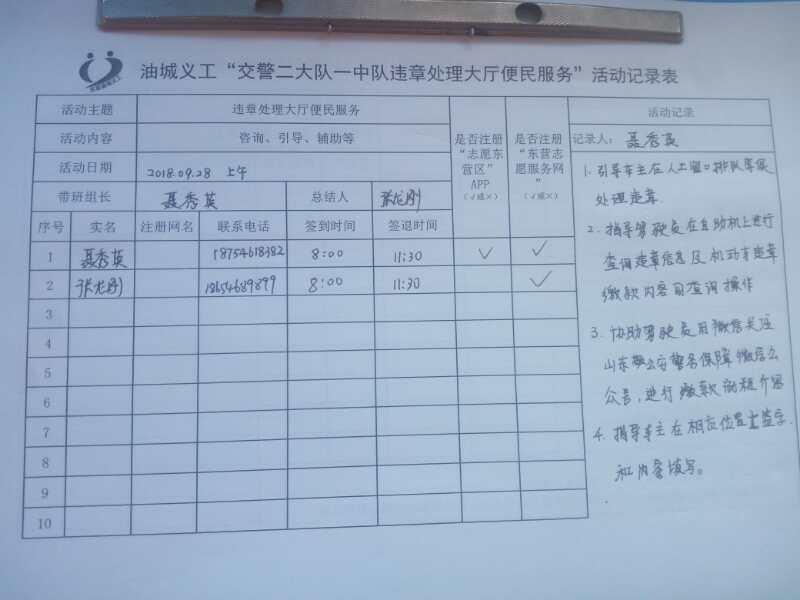 油城义工“交警二大队一中队违章处理大厅便民服务”活动记录表
活动主题 违章处理大厅便民服务
活动内容 咨询、引导、辅助等
活动日期 2018.09.28 上午
带班组长 聂秀英 总结人 张龙刚
是否注册“志愿东营区”APP（√或×）
是否注册“东营志愿服务网”（√或×）
序号 实名 注册网名 联系电话 签到时间 签退时间
1 聂秀英 18754618382 8:00 11:30 √ √
2 张龙刚 18654689899 8:00 11:30 √
3
4
5
6
7
8
9
10
活动记录
记录人： 聂秀英
1. 引导车主在人工窗口排队等候
处理违章
2. 指导驾驶员在自助机上进行
查询违章信息及机动车违章
缴款内容的查询操作
3. 协助驾驶员用微信关注
山东 公安警务保障微信公
众号，进行缴款流程介绍
4. 指导车主在相应位置上签字
和内容填写。